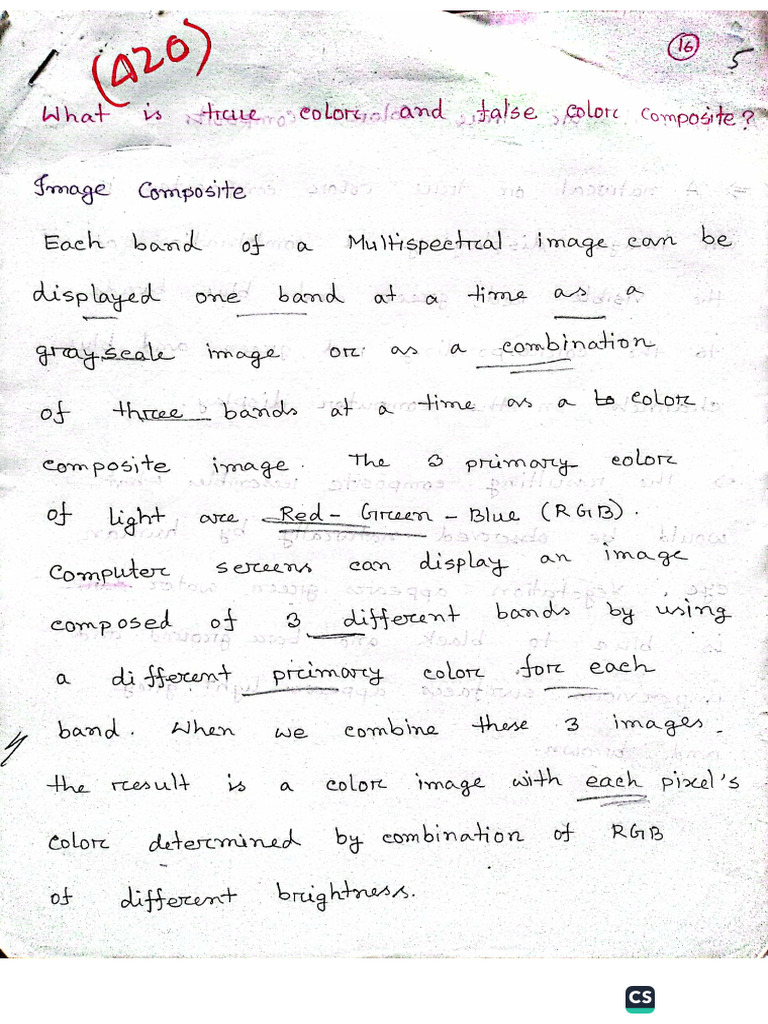 (A20)
16
5
What is true color and false color composite?
Image Composite
Each band of a Multispectral image can be
displayed one band at a time as a
gray scale image or as a combination
of three bands at a time as a to color
composite image. The 3 primary color
of light are Red - Green - Blue (RGB).
Computer screens can display an image
composed of 3 different bands by using
a different primary color for each
band. When we combine these 3 images.
the result is a color image with each pixel's
color determined by combination of RGB
of different brightness.
CS